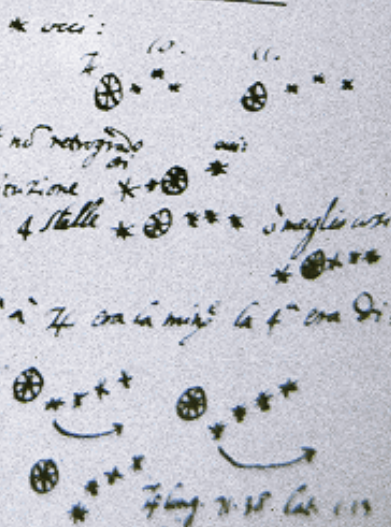 occi:
10. 11.
nō retrogrado
ori occi:
tuzione
4 Stelle è meglio così
à ♃ era la 4ª era di
♃ long. 71.38. lat. 1.13